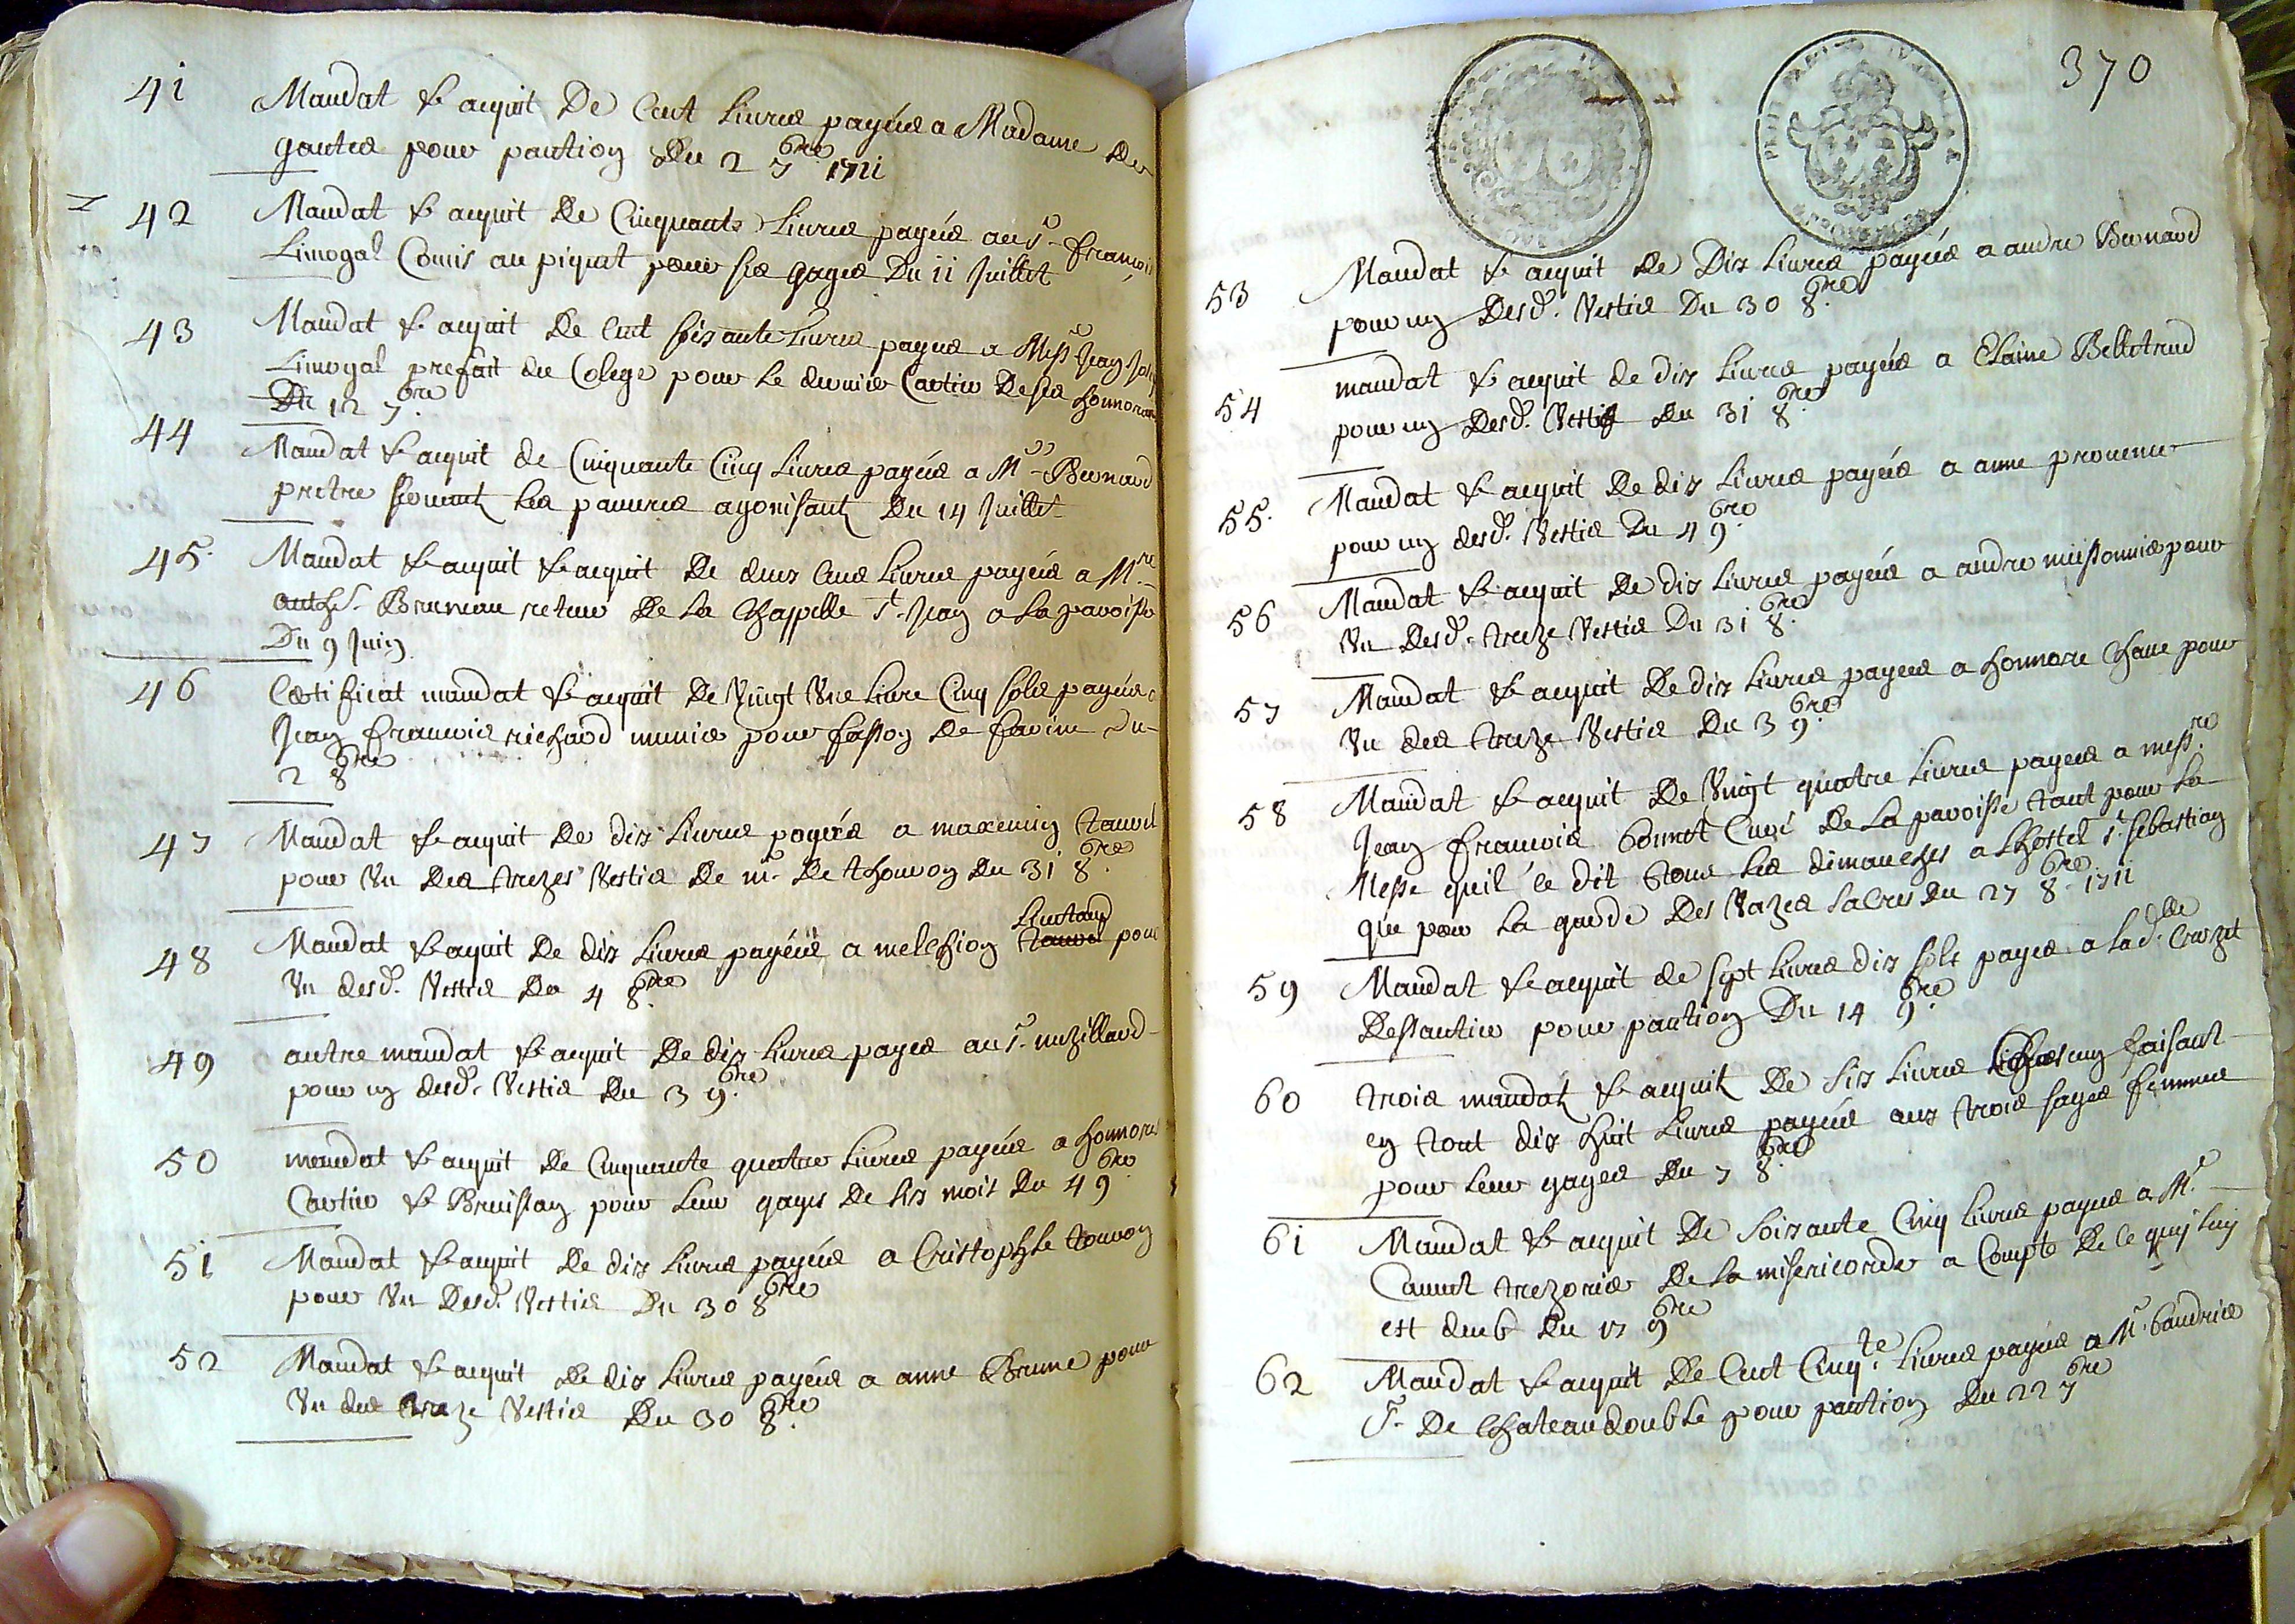 41 Mandat & acquit De Cent Livres payées a Madame De
gautier pour pantion Du 2 7bre 1711
42 Mandat & acquit De Cinquante Livres payées au Sr francois
Limogal Comis au piquet pour ses gages Du 11 Juillet
43 Mandat & acquit De Cent soixante Livres payées a Messre Jean
Limogal prefait du Colege pour le dernier Cartier De ses honnorer
Du 12 7bre
44 Mandat & acquit de Cinquante Cinq Livres payées a Mre Bernard
pretre servant les pauvres agonisant Du 14 Juillet
45 Mandat & acquit & acquit De deux Cens Livres payées a Mre
anthe. Bruneau reteur De la Chappelle St Jean a la paroisse
Du 9 Juin
46 Certificat mandat & acquit De Vuingt Une Livre Cinq sols payées a
Jean francois richard munier pour fasson de farine Du
2 8bre
47 Mandat & acquit De dix Livres payées a maxemin tauvel
pour Un Des trezes Vestis De mr De thouron Du 31 8bre
48 Mandat & aquit De dix Livres payées a melchion Lieutaud tauvel pour
Un desd. Vestis Du 4 8bre
49 autre mandat & acquit De dix Livres payées au Sr muzillard
pour un desd. Vestis Du 3 9bre
50 mandat & acquit De Cinquante quatre Livres payées a honnoré
Cartier & Bruissan pour Leur gages De six mois Du 4 9bre
51 Mandat & acquit De dix Livres payées a Cristophle touron
pour Un Desd. Vestis Du 30 8bre
52 Mandat & acquit De dix Livres payées a anne Brune pour
Un des treze Vestis Du 30 8bre
370
53 Mandat & acquit De Dix Livres payées a andre Bernard
pour un Desd. Vestis Du 30 8bre
54 mandat & acquit de dix Livres payées a Claire Bellotrud
pour un Desd. Vestis Du 31 8bre
55 Mandat & acquit De dix Livres payées a anne provence
pour un desd. Vestis Du 4 9bre
56 Mandat & acquit De dix Livres payées a andre meissonnier pour
Un Desd. treze Vestis Du 31 8bre
57 Mandat & acquit De dix Livres payées a honnore Chaue pour
Un des treze Vestis Du 3 9bre
58 Mandat & acquit De Vuingt quatre Livres payées a messre
Jean francois bonnet Curé De la paroisse tant pour la
Messe quil ce dit tous les dimanches a Lhostel St sebastian
que pour la garde Des Vazes sacres Du 27 8bre 1711
59 Mandat & acquit de sept Livres dix sols payées a lad. dlle Crozet
Dessautier pour pantion Du 14 9bre
60 trois mandat & acquit De six Livres Chascung faisant
en tout dix huit Livres payées aux trois sages femmes
pour leur gages Du 7 8bre
61 Mandat & acquit De Soixante Cinq Livres payées a Mr
Caunet trezorier De la misericorde a Compte De ce quy luy
est deub Du 17 9bre
62 Mandat & acquit De Cent Cinqte Livres payées a Mr baudrier
Sr De Chateaudouble pour pantion Du 22 7bre